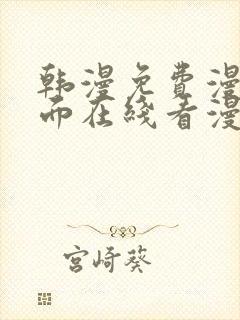 韩漫免费漫
而在线看漫
宫崎葵